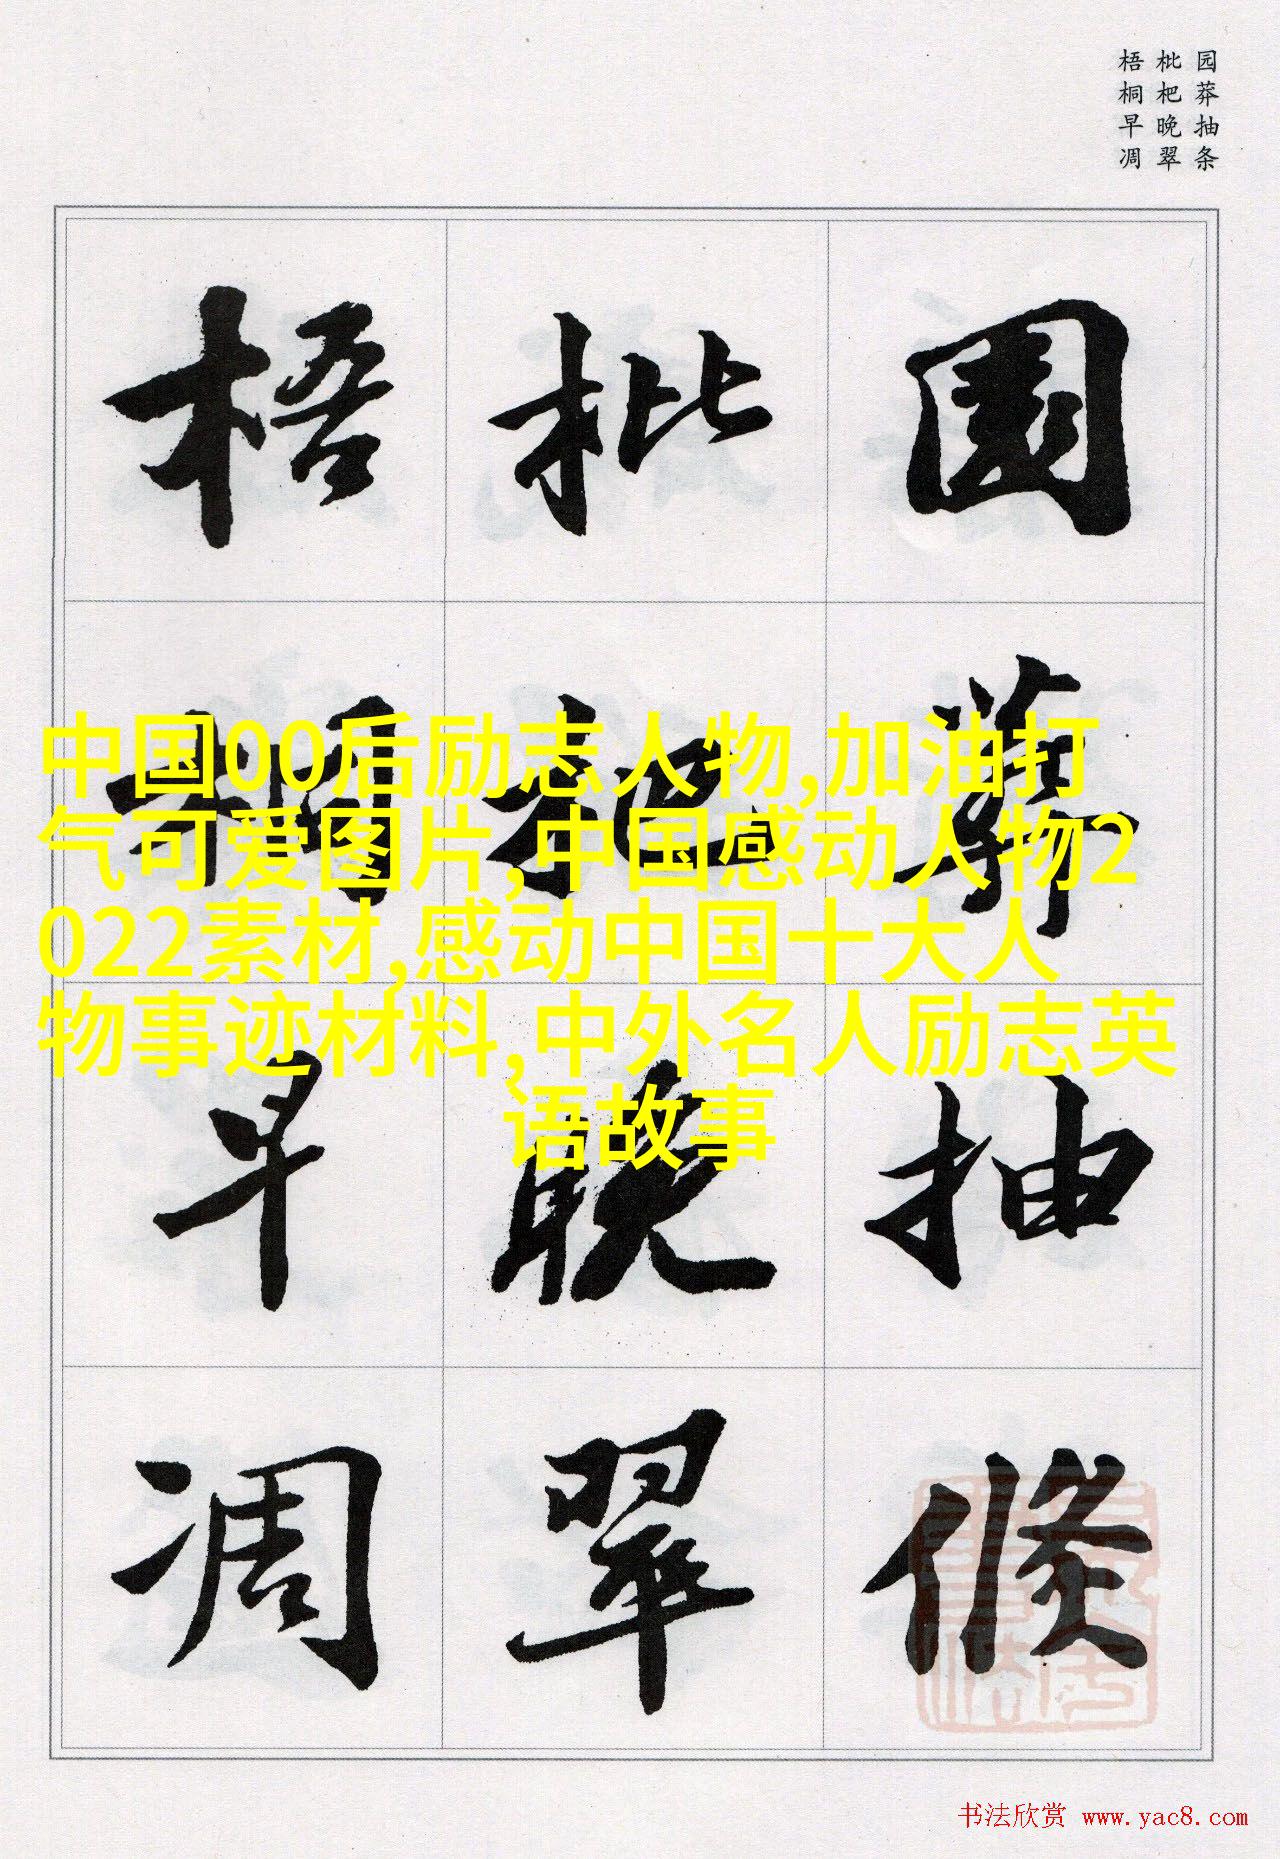 园莽抽条
枇杷晚翠
梧桐早凋
園莽抽條
枇杷晚翠
梧桐早凋
中国00后励志人物,加油打
气可爱图片,中国感动人物2
022素材,感动中国十大人
物事迹材料,中外名人励志英
语故事
书法欣赏 www.yac8.com